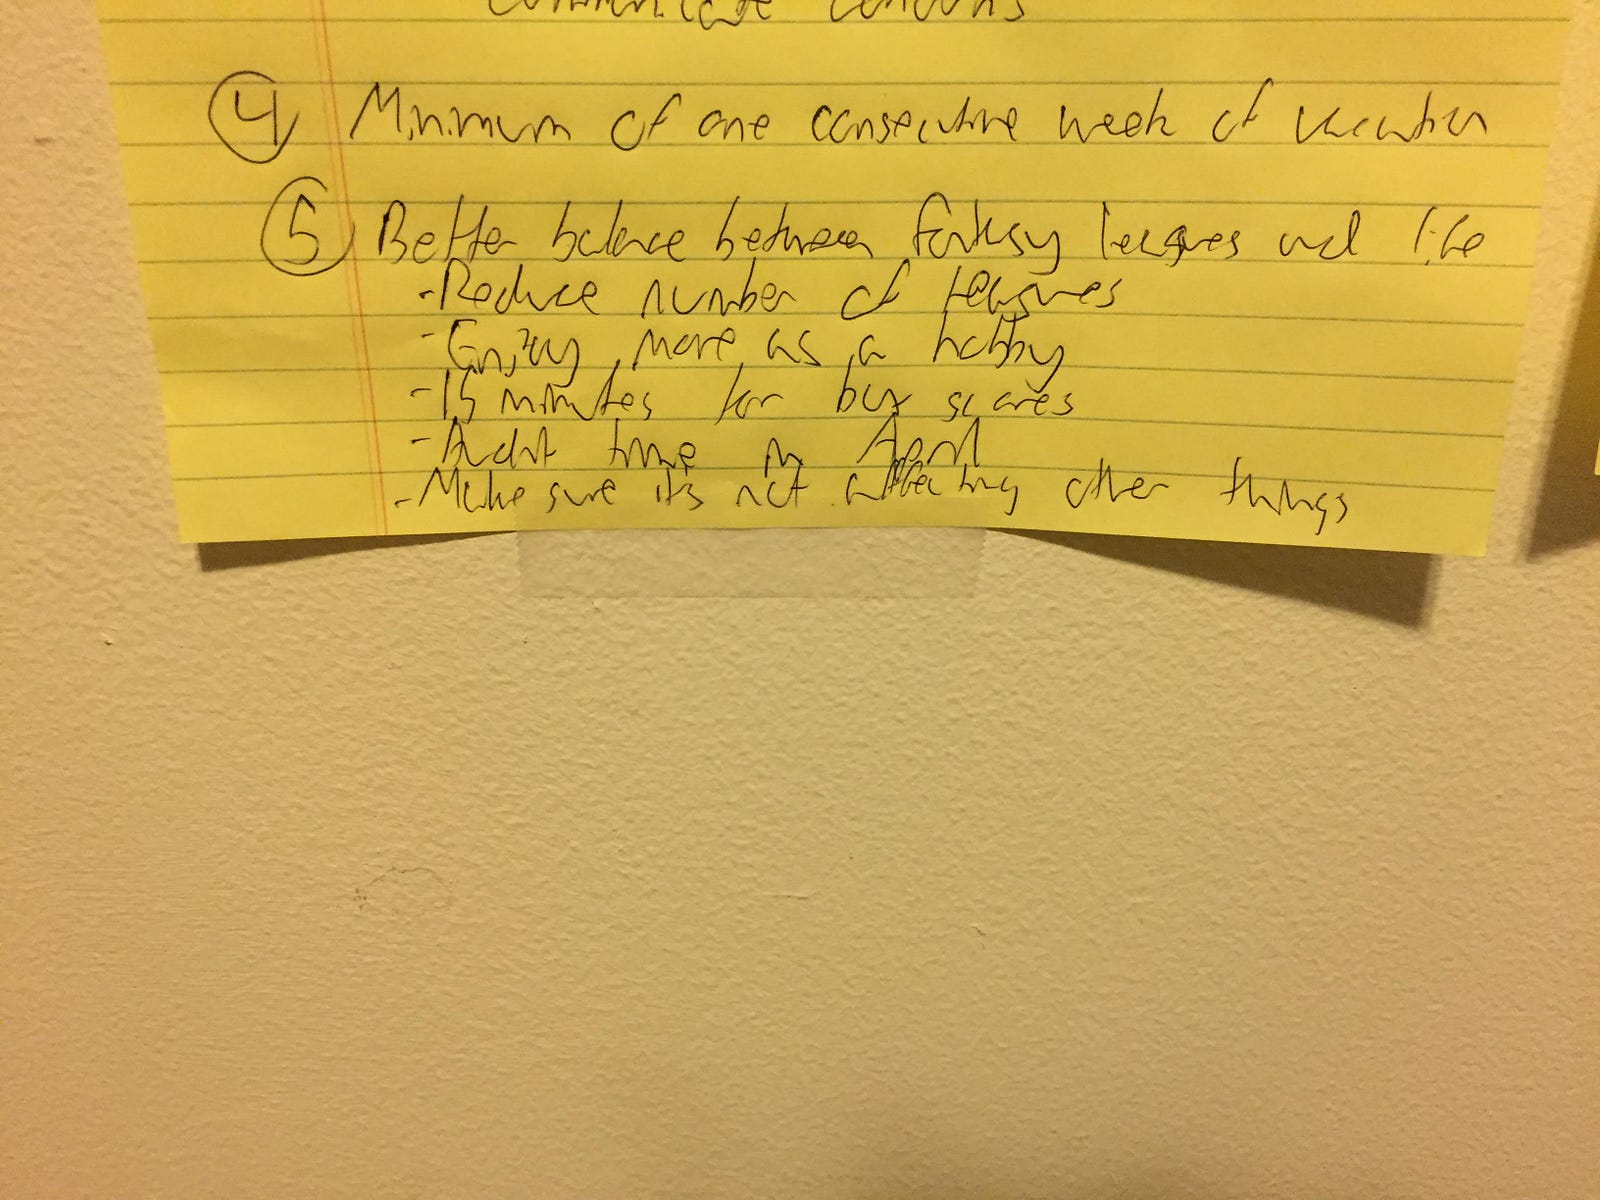 communicate
④ Minimum of one consecutive week of vacation
⑤ Better balance between fantasy leagues and life
-Reduce number of leagues
-Enjoy more as a hobby
-15 minutes for box scores
-Audit time in April
-Make sure it's not affecting other things